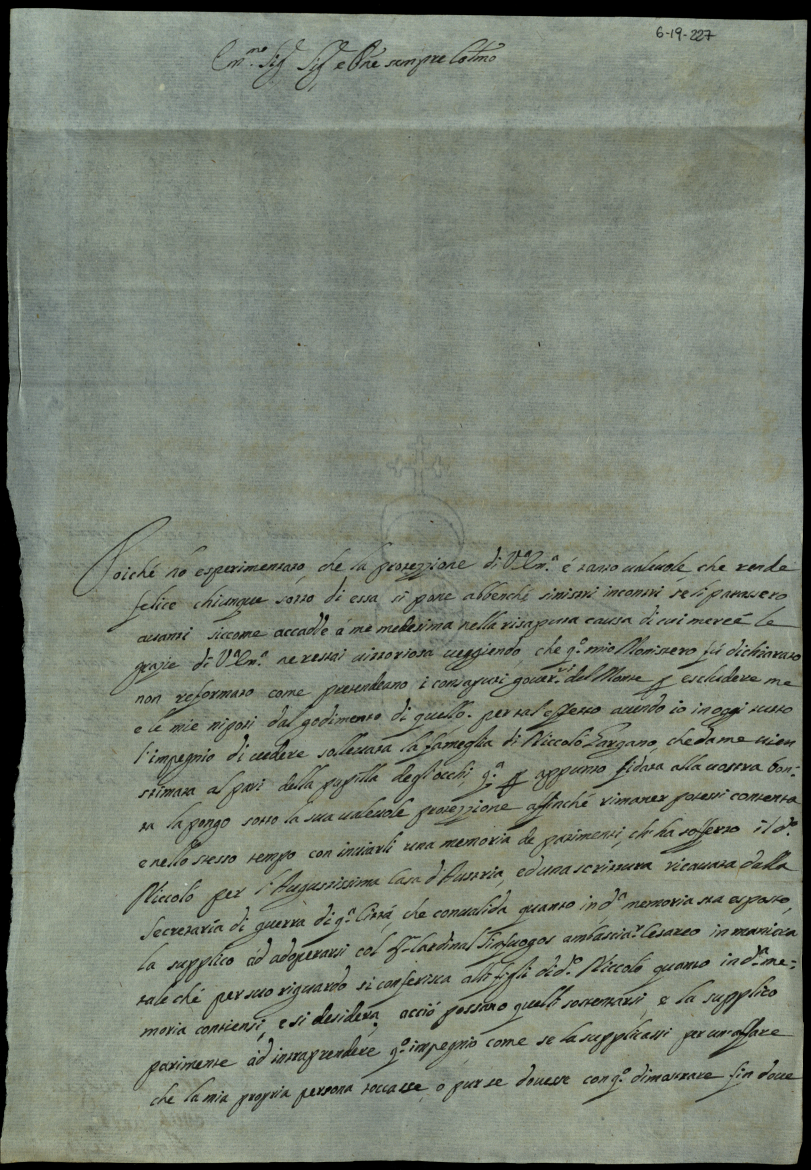 6-19-227
Em.mo Sig.r Sig.r e P.ne sempre Col.mo
Poiché hò esperimentato, che la protezzione di V.a Em.a é tanto valevole, che rende
felice chiunque sotto di essa si pone abbenche sinistri incontri se li parassero
avanti siccome accadde á me medesima nella risaputa causa di cui mercé le
grazie di V.a Em.a ne restai vittoriosa veggiendo, che q.o mio Monistero fú dichiarato
non reformato come pretendeano i consaputi gover.ri del Monte p escludere me
e le mie nipoti dal godimento di quello. per tal effetto avendo io in oggi tutto
l'impegnio di vedere sollevata la fameglia di Niccolò Gargano, che da me vien
stimata al pari della pupilla degl'occhi, q.a p appunto fidata alla vostra bon=
tà la pongo sotto la sua valevole protezzione affinché rimaner potessi contenta
e nello stesso tempo con inviarli una memoria de patimenti, ch'há sofferto il d.o
Niccolo per l'Augustissima Casa d'Austria, ed una scrittura ricavata dalla
Secretaria di guerra di q.a Città, che convalida quanto in d.a memoria sta esposto,
la supplico ad adoperarsi col S.r Cardinal Sinfuegos ambasciat.r Cesareo in maniera
tale ché per suo riguardo si conferisca alli figli di d.o Niccolò quanto in d.a me=
moria contiensi, e si desidera, acciò possano quelli sostentarsi, e la supplico
parimente ád intraprendere q.o impegnio come se la supplicassi per un affare
che la mia propria persona toccasse, o pur se dovesse con q.o dimostrare fin dove